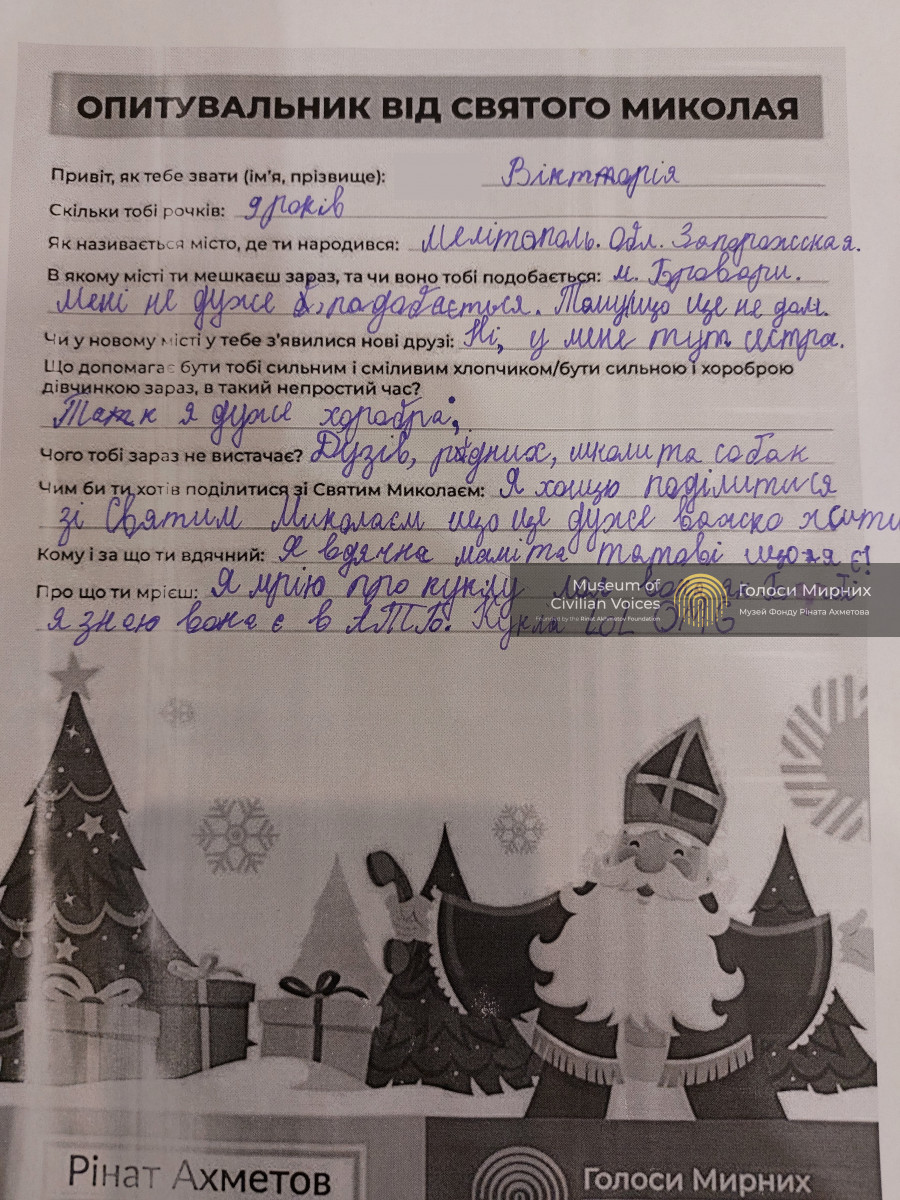 ОПИТУВАЛЬНИК ВІД СВЯТОГО МИКОЛАЯ
Привіт, як тебе звати (ім'я, прізвище): Вікторія
Скільки тобі рочків: 9 років
Як називається місто, де ти народився: Мелітополь. Обл. Запорожсская.
В якому місті ти мешкаєш зараз, та чи воно тобі подобається: м. Бровари.
Мені не дуже подобається. Тому що це не дом.
Чи у новому місті у тебе з'явилися нові друзі: Ні, у мене тут сестра.
Що допомагає бути тобі сильним і сміливим хлопчиком/бути сильною і хороброю
дівчинкою зараз, в такий непростий час?
Так я дуже хоробра.
Чого тобі зараз не вистачає? Дузів, рідних, школи та собак
Чим би ти хотів поділитися зі Святим Миколаєм: Я хощю поділитися
зі Святим Миколаєм що це дуже важко жити
Кому і за що ти вдячний: Я вдячна мамі та татові що я є!
Про що ти мрієш: Я мрію про куклу
я знаю вона є в АТБ. Кукла LOL OMG
Museum of
Civilian Voices
Founded by the Rinat Akhmetov Foundation
Голоси Мирних
Музей Фонду Ріната Ахметова
Рінат Ахметов
Голоси Мирних